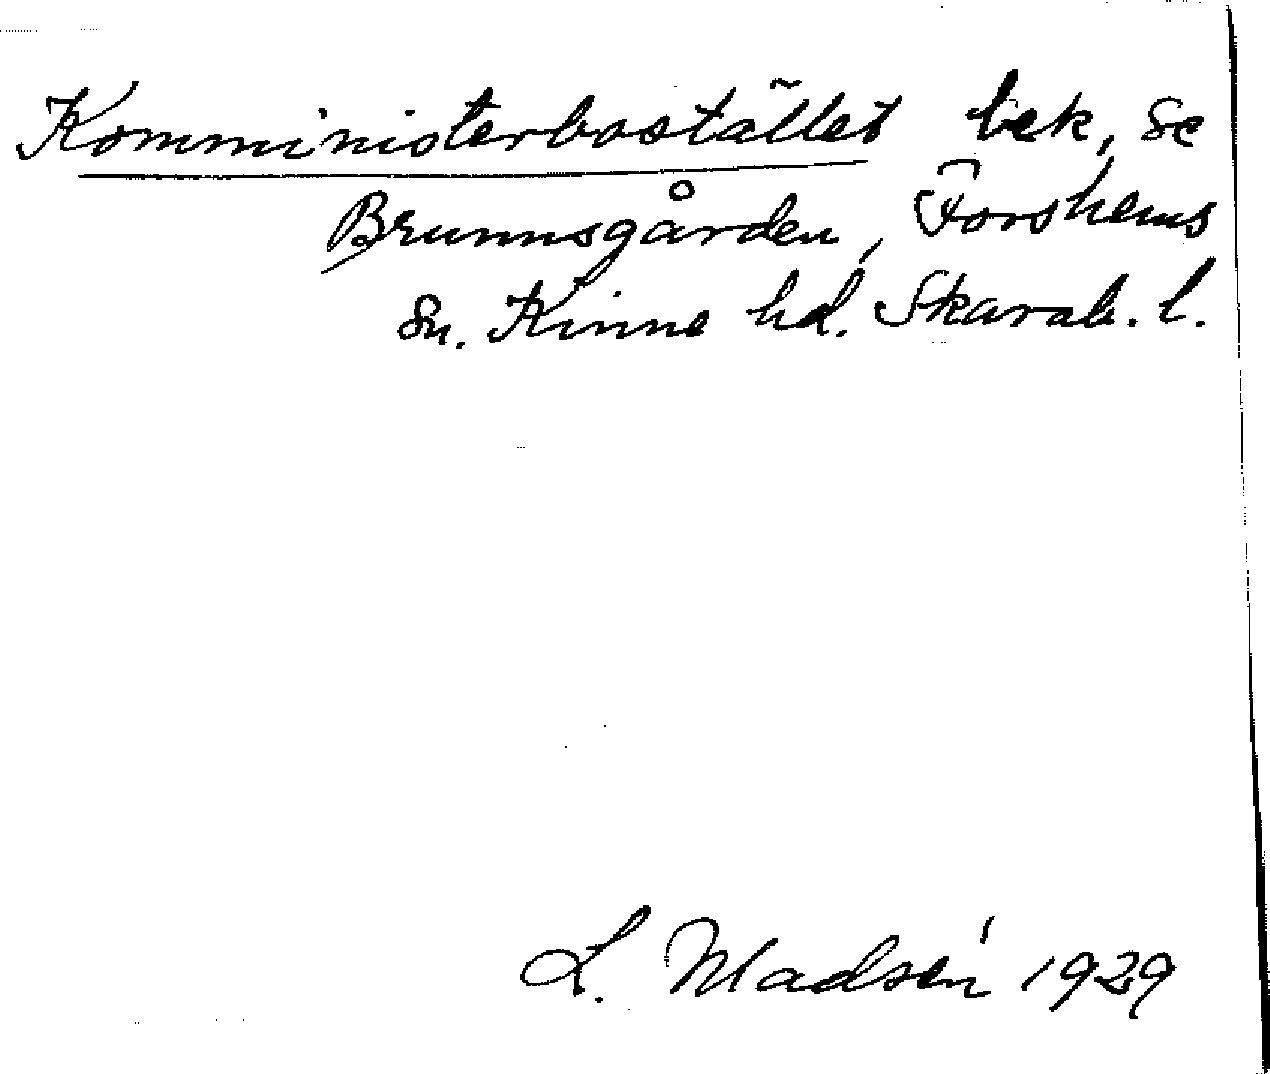 Komministerbostället bek, se
Brunnsgården, Forshems
sn. Kinne hd. Skarab. l.
L. Madsén 1929